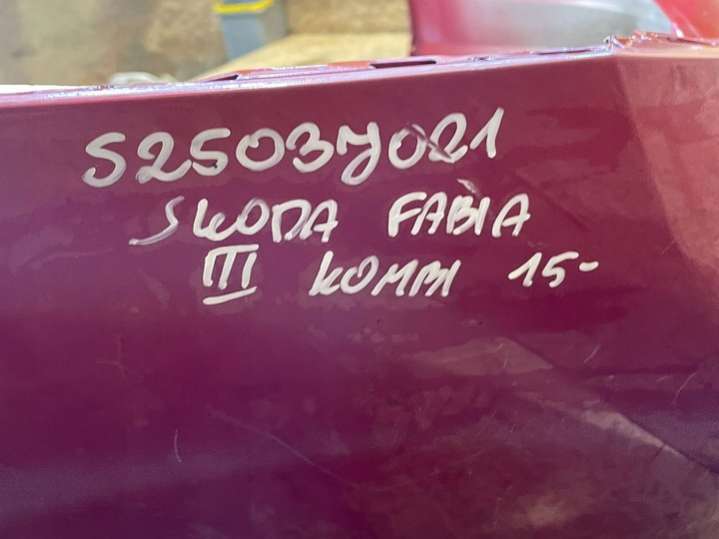 S2503J021
SKODA FABIA
III KOMBI 15-